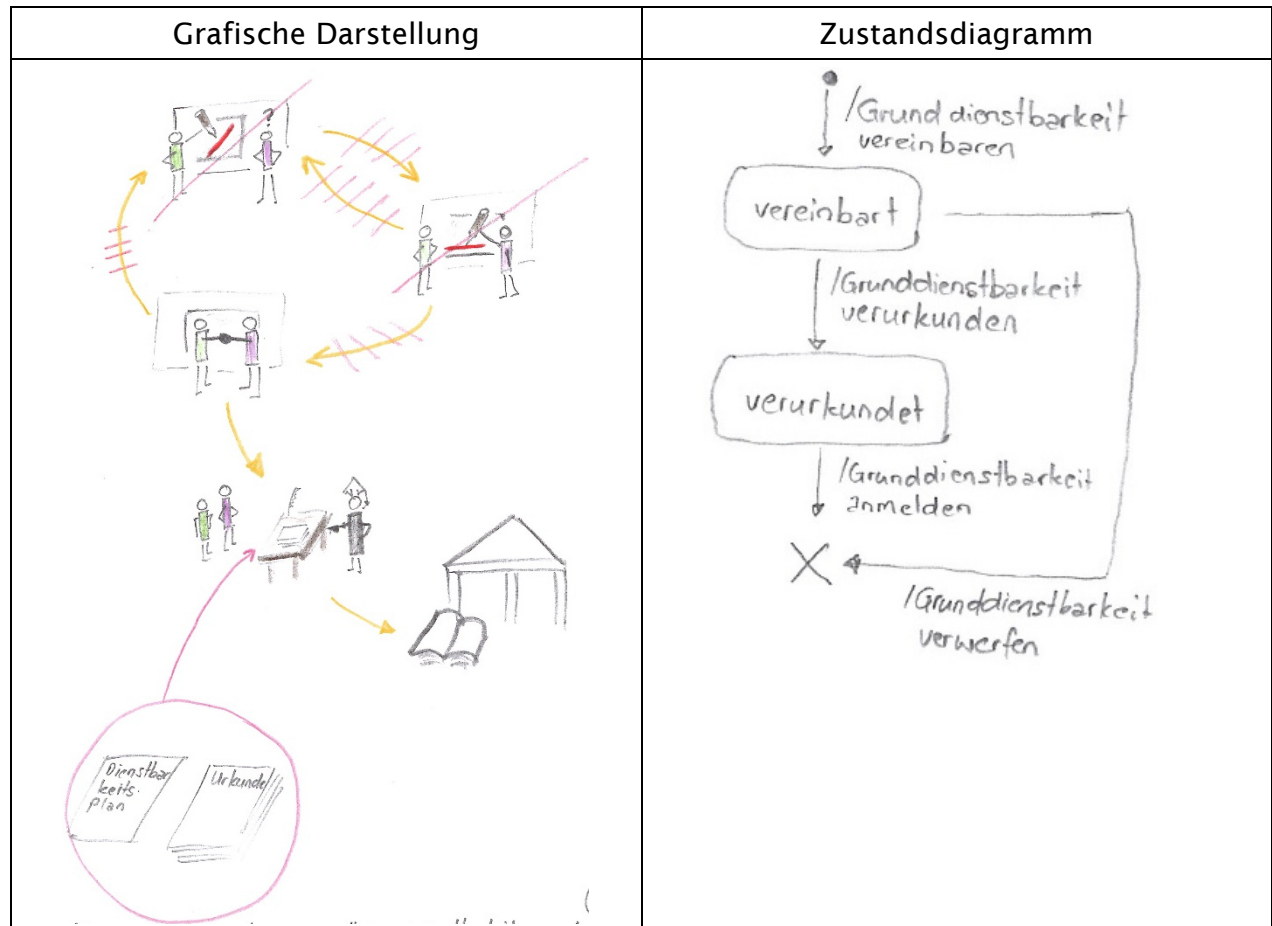 Grafische Darstellung
Zustandsdiagramm
?
Dienstbar
keits-
Plan
Urkunde
/Grunddienstbarkeit
vereinbaren
vereinbart
/Grunddienstbarkeit
verurkunden
verurkundet
/Grunddienstbarkeit
anmelden
/Grunddienstbarkeit
verwerfen